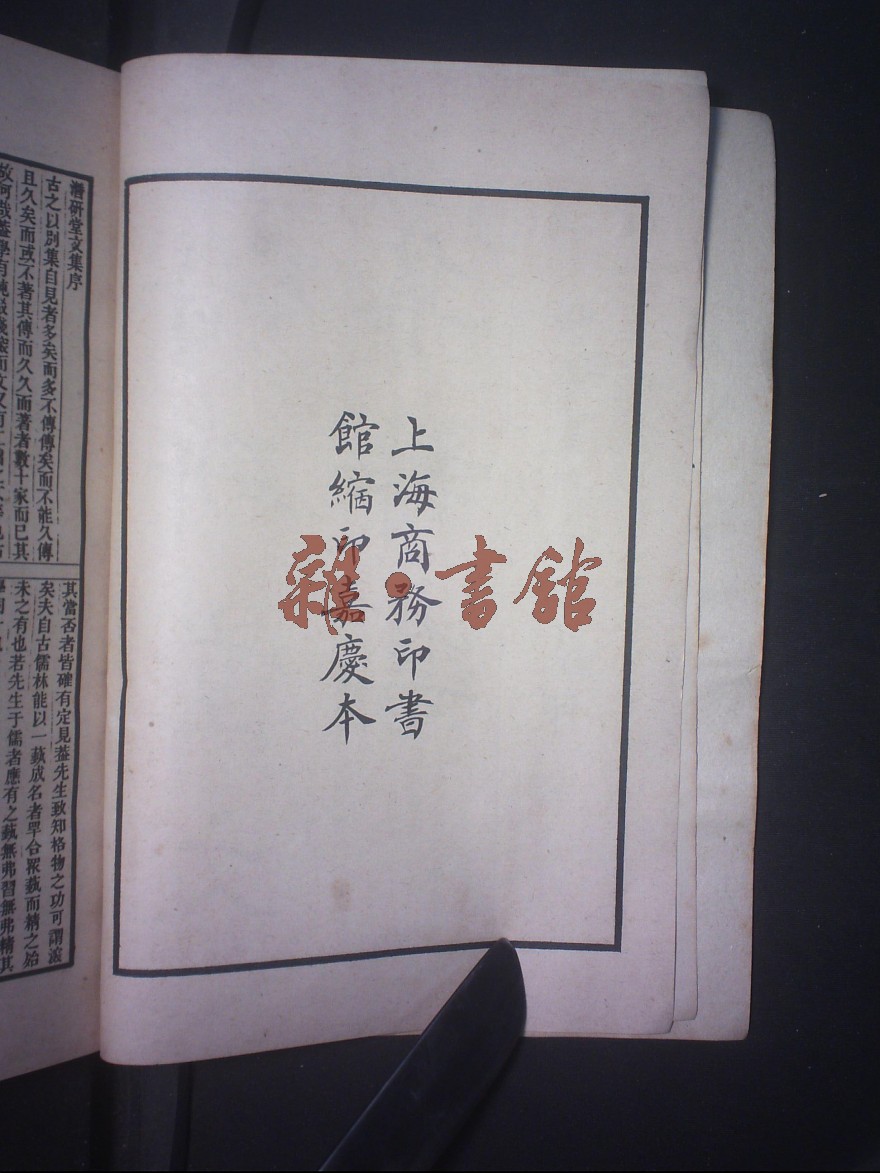 上海商務印書
館縮印嘉慶本
雜·書館
潛研堂文集序
古之以別集自見者多矣而多不傳傳矣而不能久傳
且久矣而或不著其傳而久久而著者數十家而已其
其當否者皆確有定見葢先生致知格物之功可謂深
矣夫自古儒林能以一藝成名者罕合眾藝而精之殆
未之有也若先生于儒者應有之藝無弗習無弗精其